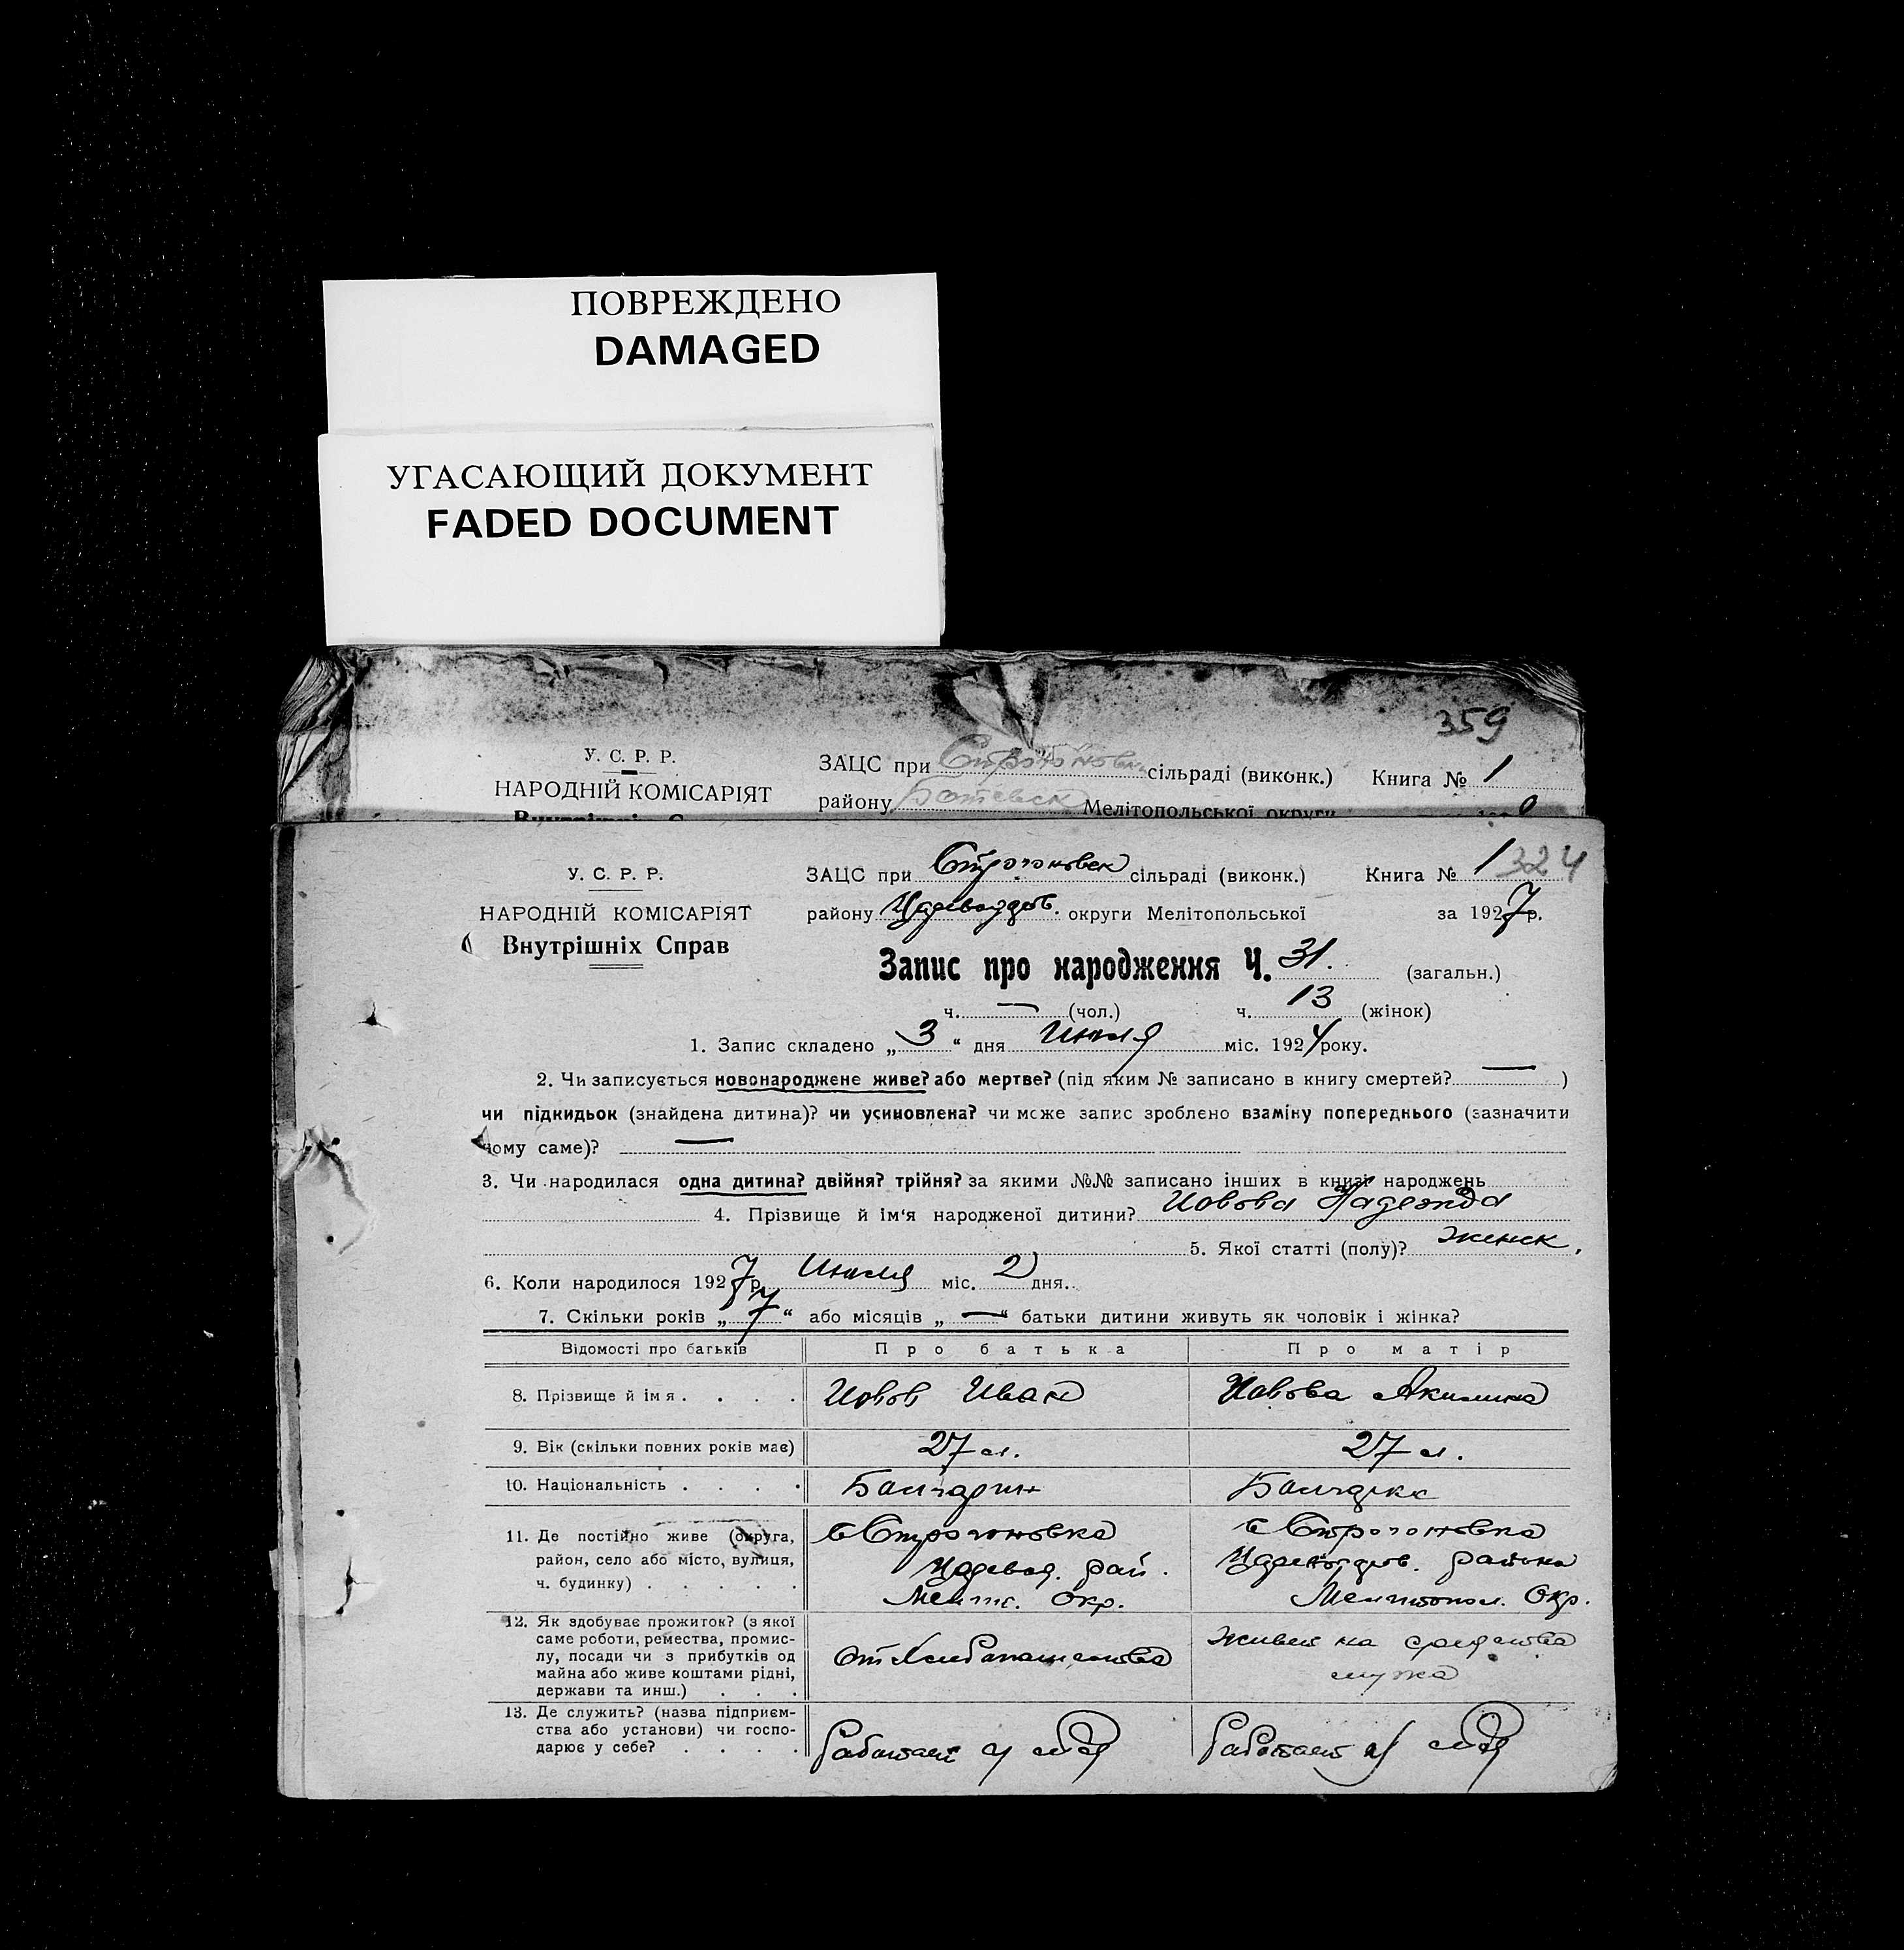 ПОВРЕЖДЕНО
DAMAGED
УГАСАЮЩИЙ ДОКУМЕНТ
FADED DOCUMENT
359
У. С. Р. Р.
НАРОДНІЙ КОМІСАРІЯТ
ЗАЦС при Строгоновск сільраді (виконк.) Книга № 1
району Ботевск Мелітопольської округи
324
У. С. Р. Р.
НАРОДНІЙ КОМІСАРІЯТ
Внутрішніх Справ
ЗАЦС при Строгоновск сільраді (виконк.) Книга № 1
району Цареводдов. округи Мелітопольської за 1927 р.
Запис про народження Ч. 31. (загальн.)
ч. — (чол.) ч. 13 (жінок)
1. Запис складено „ 3 “ дня Июля міс. 192 року.
2. Чи записується новонароджене живе? або мертве? (під яким № записано в книгу смертей? — )
чи підкидьок (знайдена дитина)? чи усиновлена? чи може запис зроблено взаміну попереднього (зазначити
чому саме)? —
3. Чи народилася одна дитина? двійня? трійня? за якими №№ записано інших в книзі народжень
4. Прізвище й ім‘я народженої дитини? Иовова Надежда
5. Якої статті (полу)? женск.
6. Коли народилося 1927 р. Июля міс. 2 дня.
7. Скільки років „ 7 “ або місяців „ — “ батьки дитини живуть як чоловік і жінка?
Відомості про батьків Про батька Про матір
8. Прізвище й ім я . . . . Иовов Иван Иовова Акилина
9. Вік (скільки повних років має) 27 л. 27 л.
10. Національність . . . . Болгарин Болгарка
11. Де постійно живе (округа,
район, село або місто, вулиця,
ч. будинку) . . . . .
с Строгоновка
Царевод. рай.
Мелит. Окр.
с Строгоновка
Цареводдов. района
Мелитопол. Окр.
12. Як здобуває прожиток? (з якої
саме роботи, ремества, промис-
лу, посади чи з прибутків од
майна або живе коштами рідні,
держави та инш.) . . .
от Хлебопашества
живет на средства
мужа
13. Де служить? (назва підприєм-
ства або установи) чи госпо-
дарює у себе? . . . .
Работает у себя
Работает у себя